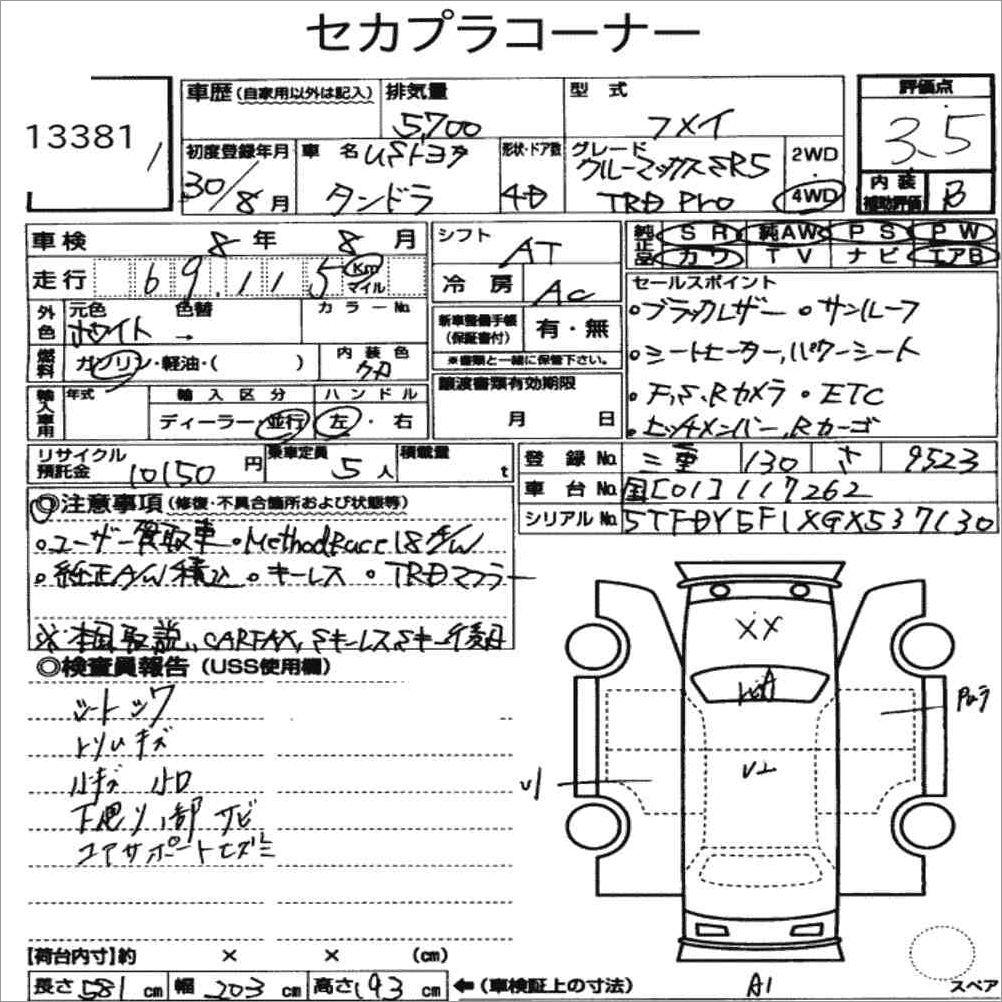 セカプラコーナー
13381
車歴 (自家用以外は記入) 排気量 5,700 型式 フメイ 評価点 3.5
初度登録年月 30/8月 車名 USトヨタ タンドラ 形状・ドア数 4D グレード クルーマックスSR5 TRD Pro 2WD 4WD 内装補助評価 B
車検 8年 8月 シフト AT 純正品 SR 純AW PS PW
カワ TV ナビ エアB
走行 69,115 Km マイル 冷房 AC
外色 元色 ホワイト 色替 → カラーNo. 新車整備手帳 (保証書付) 有・無
※書類と一緒に保管下さい。
燃料 ガソリン・軽油・( ) 内装色 クロ
輸入車用 年式 輸入区分 ディーラー・並行 ハンドル 左・右
譲渡書類有効期限 月 日
セールスポイント
○ブラックレザー ○サンルーフ
○シートヒーター,パワーシート
○F,S,Rカメラ ○ETC
○ヒッチメンバー,Rカーゴ
リサイクル預託金 10150円 乗車定員 5人 積載量 t
登録No. 三重 130 さ 9523
車台No. 国[01]117262
シリアルNo. 5TFDY5F1XGX537130
◎注意事項 (修復・不具合箇所および状態等)
○ユーザー買取車 ○MethodRace 18A/W
○純正A/W積込 ○キーレス ○TRDマフラー
※本国取説, CARFAX, Sキーレス Sキー後日
◎検査員報告 (USS使用欄)
シートシワ
トソムキズ
小キズ 小凹
下廻り、部サビ
コアサポートヒズミ
XX
U1
U2
A1
スペア
【荷台内寸】約 × × (cm)
長さ 581 cm 幅 203 cm 高さ 193 cm ←(車検証上の寸法)